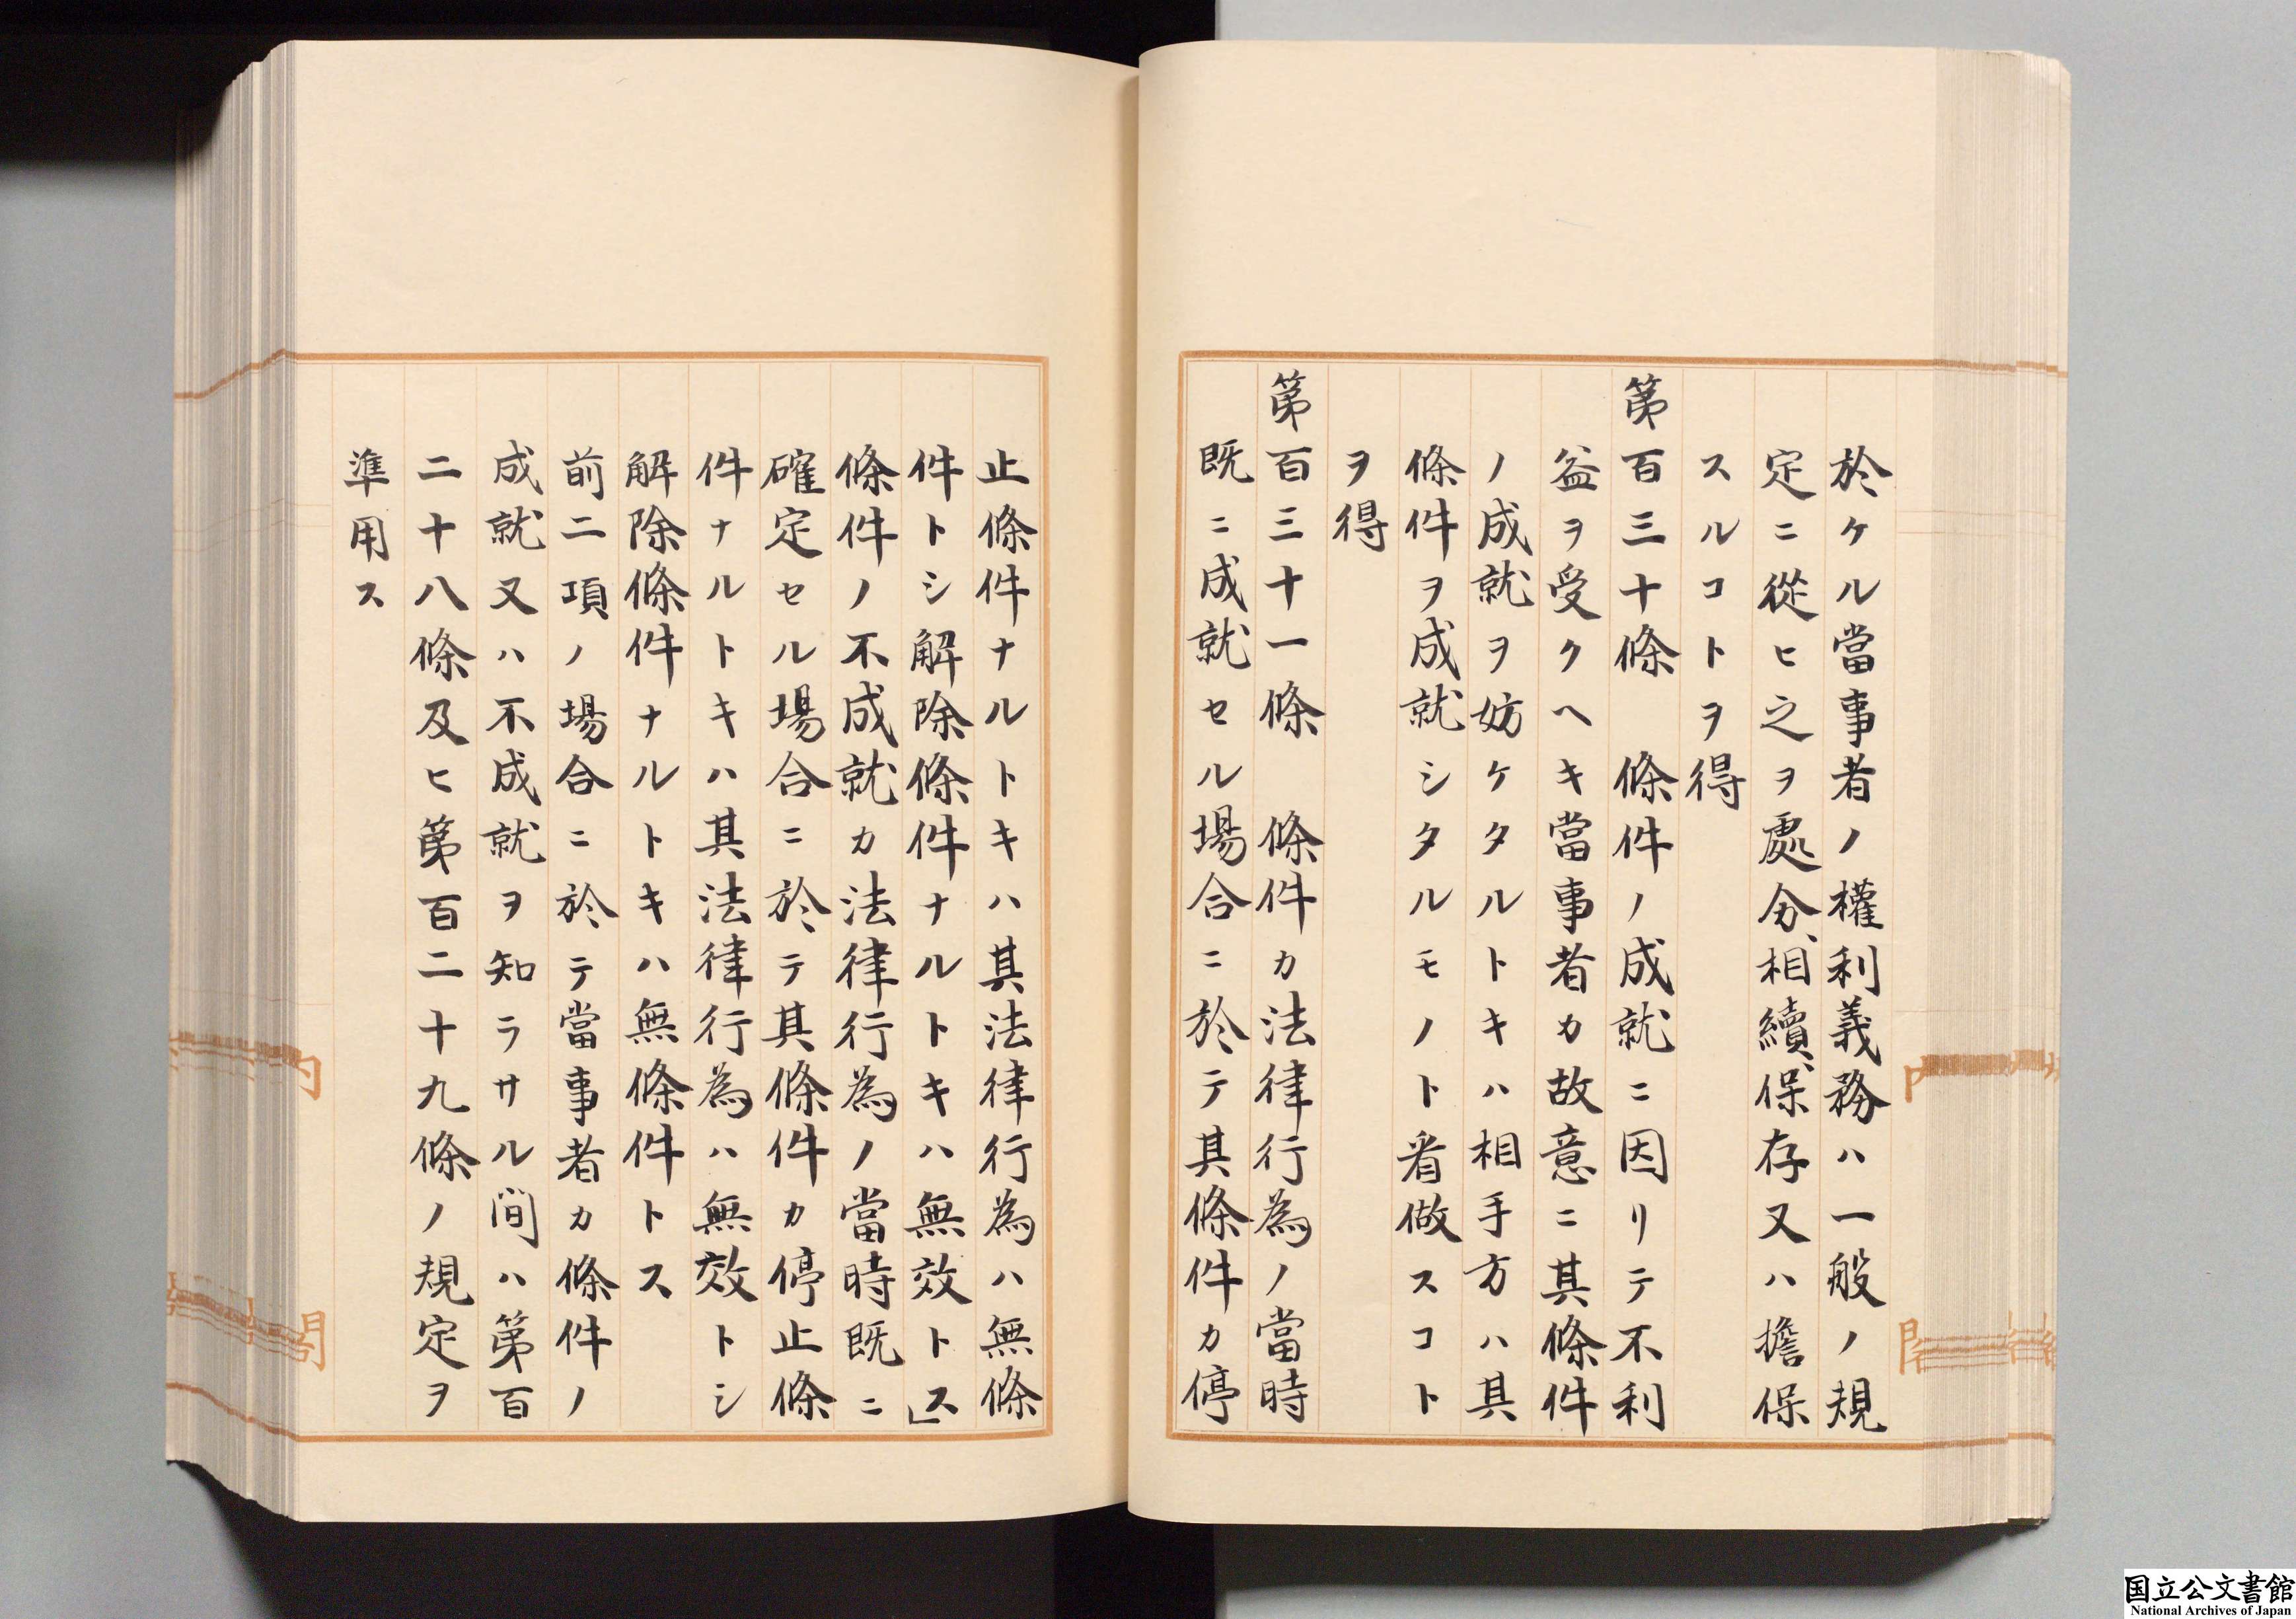 於ケル當事者ノ權利義務ハ一般ノ規
定ニ從ヒ之ヲ處分、相續、保存又ハ擔保
スルコトヲ得
第百三十條　條件ノ成就ニ因リテ不利
益ヲ受クヘキ當事者カ故意ニ其條件
ノ成就ヲ妨ケタルトキハ相手方ハ其
條件ヲ成就シタルモノト看做スコト
ヲ得
第百三十一條　條件カ法律行為ノ當時
既ニ成就セル場合ニ於テ其條件カ停
止條件ナルトキハ其法律行為ハ無條
件トシ解除條件ナルトキハ無效トス」
條件ノ不成就カ法律行為ノ當時既ニ
確定セル場合ニ於テ其條件カ停止條
件ナルトキハ其法律行為ハ無效トシ
解除條件ナルトキハ無條件トス
前二項ノ場合ニ於テ當事者カ條件ノ
成就又ハ不成就ヲ知ラサル間ハ第百
二十八條及ヒ第百二十九條ノ規定ヲ
準用ス
国立公文書館
National Archives of Japan